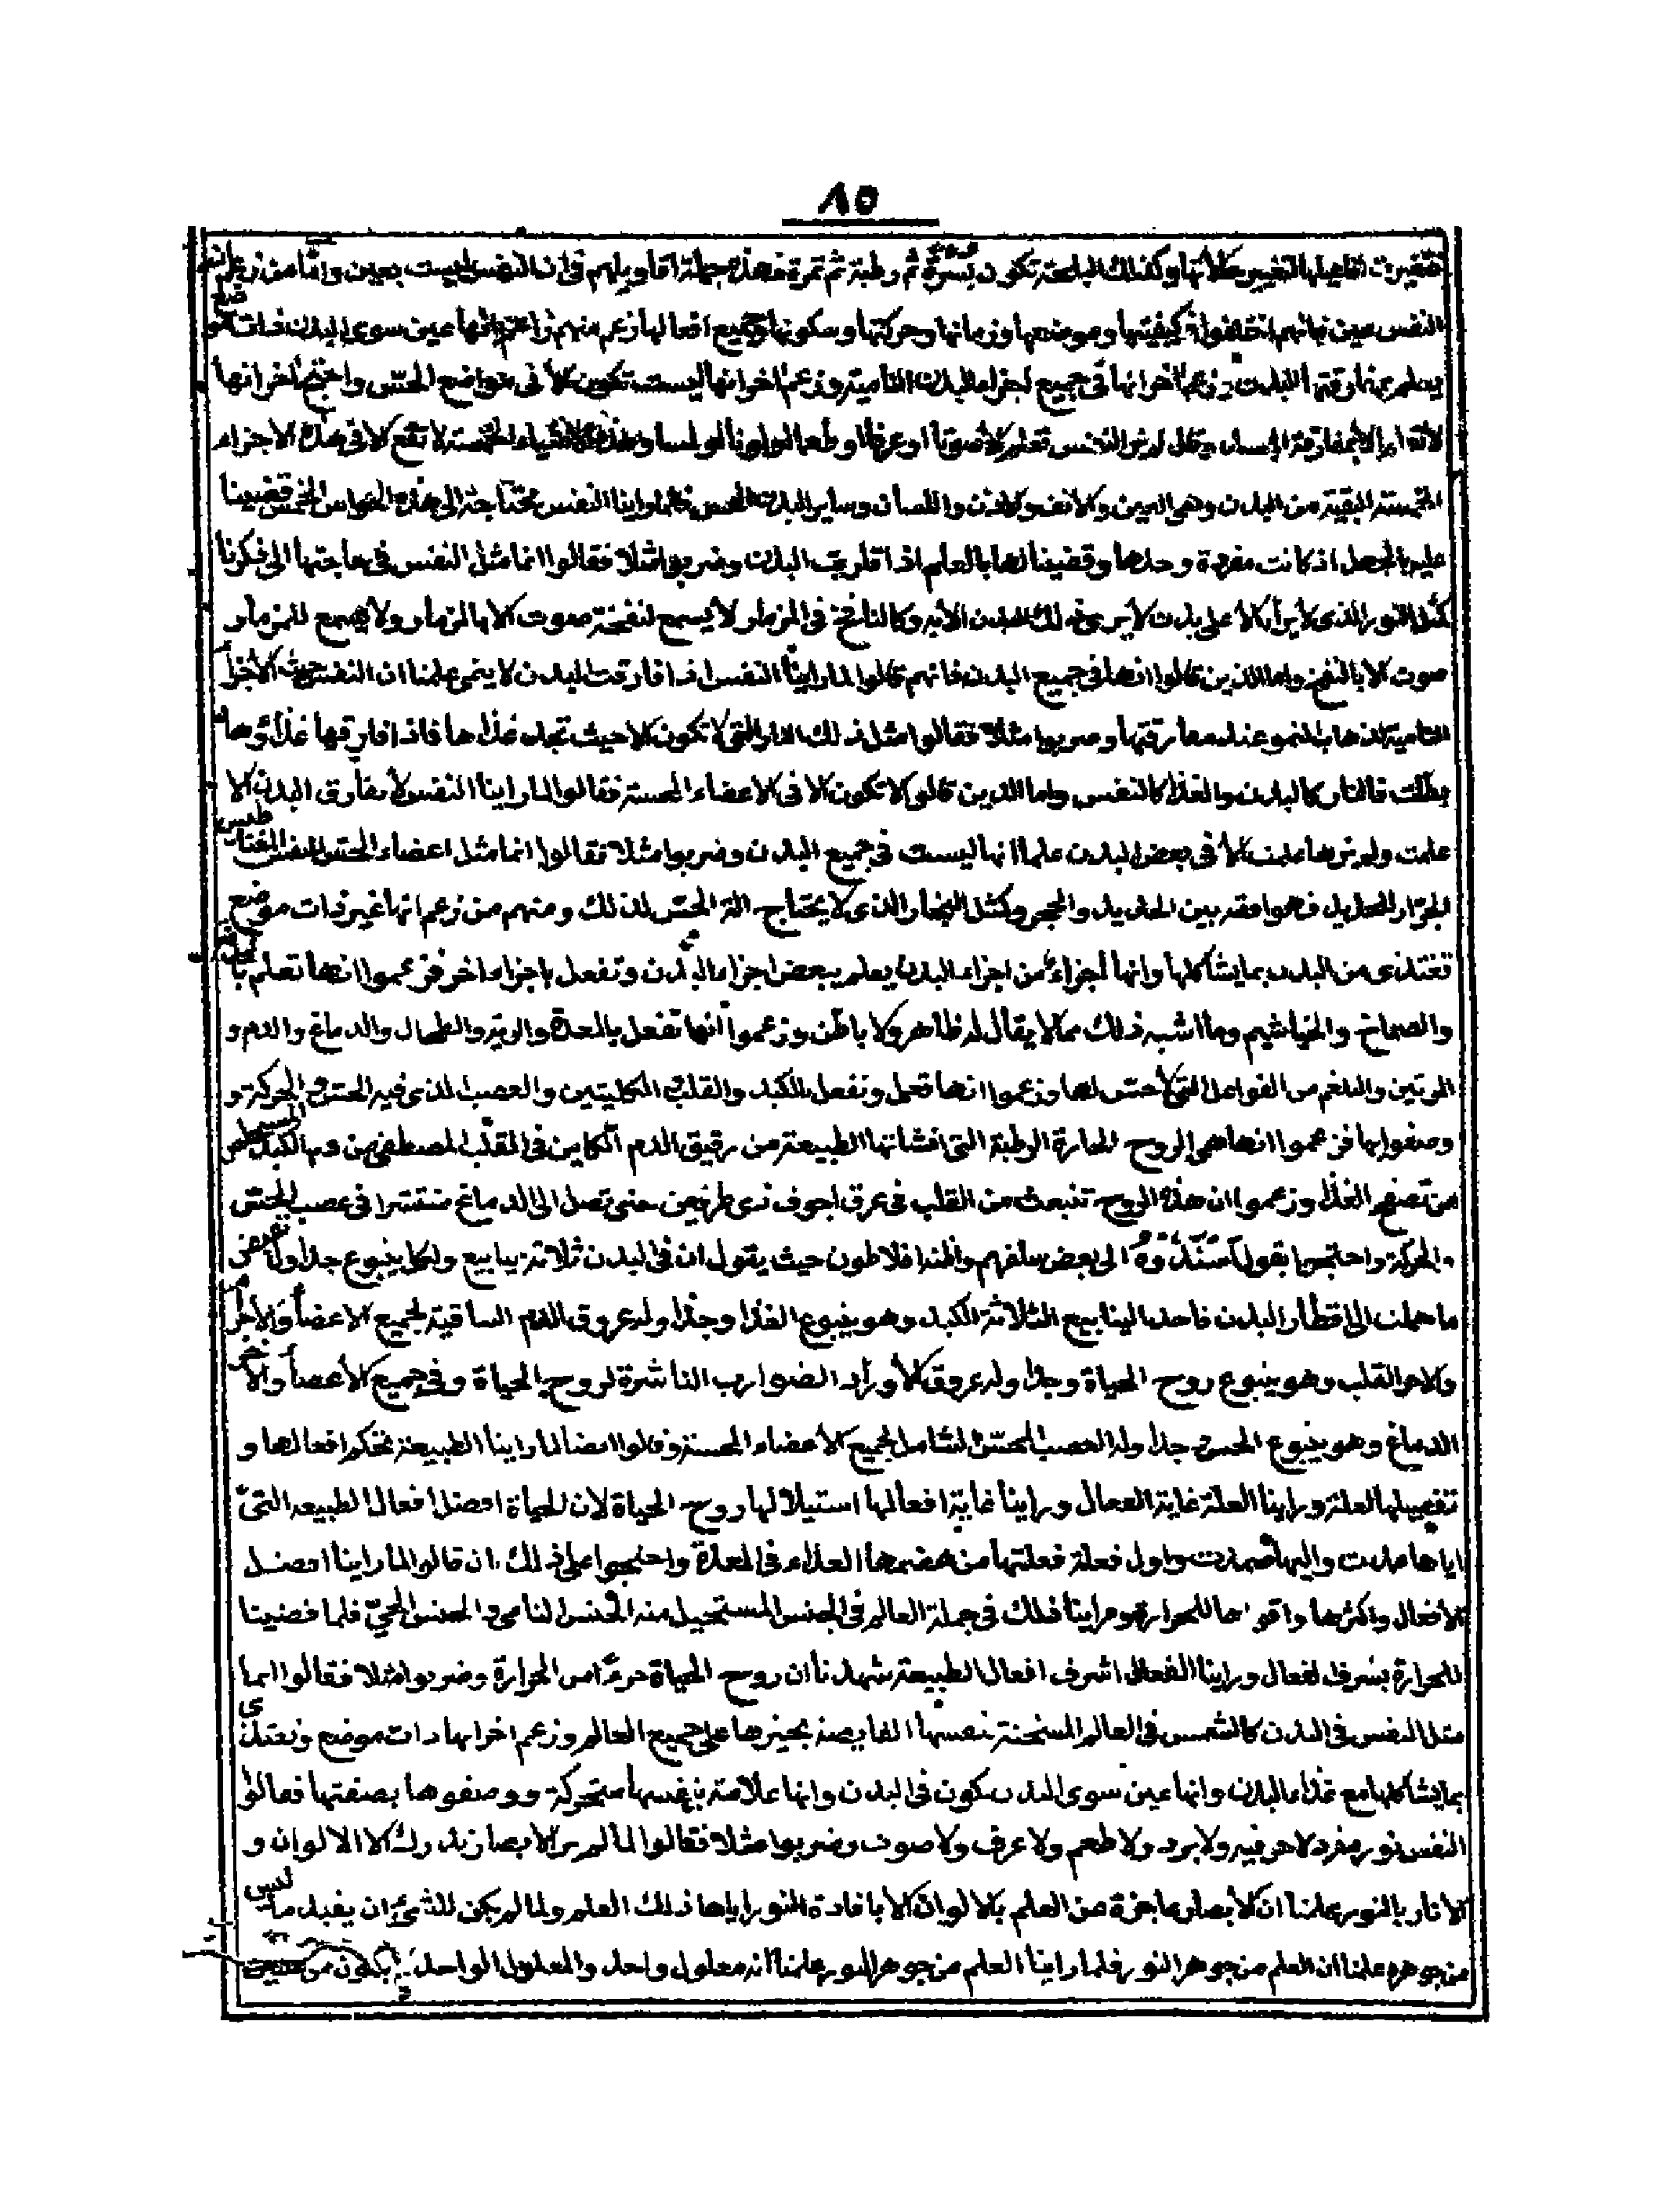 ٨٥
فتغيرت افاعيلها لتغيير حالاتها وكذلك البلحة تكون بسرة ثم رطبة ثم تمرة فهذه جملة اقاويلهم في ان النفس ليست بعين واما من زعم ان
النفس عين فانهم اختلفوا في كيفيتها وموضعها وزمانها وحركتها وسكونها وجميع افعالها زعم منهم زاعم انها عين سوى البدن ذات موضع
بمفارقتها البدن وزعم اخر انها في جميع اجزاء البدن النامية وزعم اخر انها ليست تكون الا في مواضع الحس واحتج اخر انها
النفس تعلم الا صوتا او عرفا او طعما او لونا او لمسا وهذه الاشياء الخمسة لا تقع الا في هذه الاجزاء
الخمسة البقية من البدن وهي العين والانف والاذن واللسان وساير البدن فلما راينا النفس محتاجة الى هذه الحواس الخمس قضينا
عليها بالجهل اذ كانت مفردة وحدها وقضينا لها بالعلم اذا قارنت البدن وضربوا مثلا فقالوا انما مثل النفس في حاجتها الى
كمثل النور الذي لا يرى الا على بدن لا يرى ذلك البدن الا به وكالنافخ في المزمار لا يسمع لنفخته صوت الا بالمزمار ولا يسمع للمزمار
صوت الا بالنفخ واما الذين قالوا انها في جميع البدن فانهم قالوا لما راينا النفس اذا فارقت البدن لا ينمى علمنا ان النفس حيث الاجزا
النامية لذهاب النمو عند مفارقتها وضربوا مثلا فقالوا مثل ذلك النار التي لا تكون الا حيث تجد غذاها فاذا فارقها غذاؤها
بطلت فالنار كالبدن والغذا كالنفس واما الذين قالوا لا تكون الا في الاعضاء الحسة فقالوا لما راينا النفس لا تفارق البدن الا
علمت ولم نرها علمت الا في بعض البدن علمنا انها ليست في جميع البدن وضربوا مثلا فقالوا انما مثل اعضاء الحس للنفس المغناطيس
الجرار للحديد بين الحديد والحجر وكمثل البخار الذي لا يحتاج الة الحس لذلك ومنهم من زعم انها غير ذات موضع
تغتذى من البدن بما يشاكلها وانها اجزاء من اجزاء البدن يعلم ببعض اجزاء البدن وتفعل باجزاء اخر فزعموا انها تعلم
والصماخ والخياشيم وما اشبه ذلك مما لا يقال له ظاهر ولا باطن وزعموا انها تفعل بالمعدة والرية والطحال والدماغ والدم و
المرتين والبلغم من الفواعل التي لا حس لها وزعموا انها تعمل وتفعل بالكبد والقلب الكليتين والعصب الذي فيه الحس والحركة و
وصفوا بها فزعموا انها هي الروح الحارة الرطبة التي افشاتها الطبيعة من رقيق الدم الكاين في القلب المصطفى من دم الكبد
من تصفى الغذا وزعموا ان هذه الروح تنبعث من القلب في عرق اجوف ذي طرفين حتى تصل الى الدماغ منتشرا في عصب الحس
والحركة واحتجوا بقول اسندوه الى بعض سلفهم واظنه افلاطون حيث يقول ان في البدن ثلاثة ينابيع ولكل ينبوع جداول
ما حملت الى اقطار البدن فاحد الينابيع الثلاثة الكبد وهو ينبوع الغذا وجداوله عروق الدم الساقية لجميع الاعضا والاخر
والاخر القلب وهو ينبوع روح الحياة وجداوله عروق الاوراد الضوارب الناشرة لروح الحياة وفي جميع الاعضا والاخر
الدماغ وهو ينبوع الحس وجداوله العصب الحسي الشامل لجميع الاعضاء الحسة وقالوا ايضا لما راينا الطبيعة تحكم افعالها و
تفصيلها لعلة وراينا العلة غاية الفعال وراينا غاية افعالها استيلا لها روح الحياة لان الحياة افضل افعال الطبيعة التي
اياها ملت واليها صمدت واول فعلة فعلتها من هضمها الغذاء في المعدة واحتجوا على ذلك ان قالوا لما راينا افضل
الافعال واكثرها واقواها للحرارة وراينا ذلك في جملة العالم في الجنس المستحيل منه الجنس النامي والجنس الحي فلما قضينا
للحرارة بشرف الفعال وراينا الفعال اشرف افعال الطبيعة شهدنا ان روح الحياة جزءا من الحرارة وضربوا مثلا فقالوا انما
مثل النفس في البدن كالشمس في العالم المسخنة بنفسها على جميع العالم وزعم اخر انها ذات موضع وتغتذى
بما يشاكلها مع غذاء البدن وانها عين سوى البدن تكون في البدن وانها علامة بنفسها متحركة ووصفوها بصفتها فقالوا
النفس نور مفرد لا حر فيه ولا برد ولا طعم ولا عرف ولا صوت وضربوا مثلا فقالوا لما لم نر الابصار تدرك الا الالوان و
الانار بالنور علمنا ان الابصار عاجزة من العلم بالالوان الا بافادة النور اياها ذلك العلم ولما لم يكن للشيء ان يفيد ما ليس
من جوهره علمنا ان العلم من جوهر النور فلما راينا العلم من جوهر النور علمنا انه معلول واحد والمعلول الواحد لا يكون من